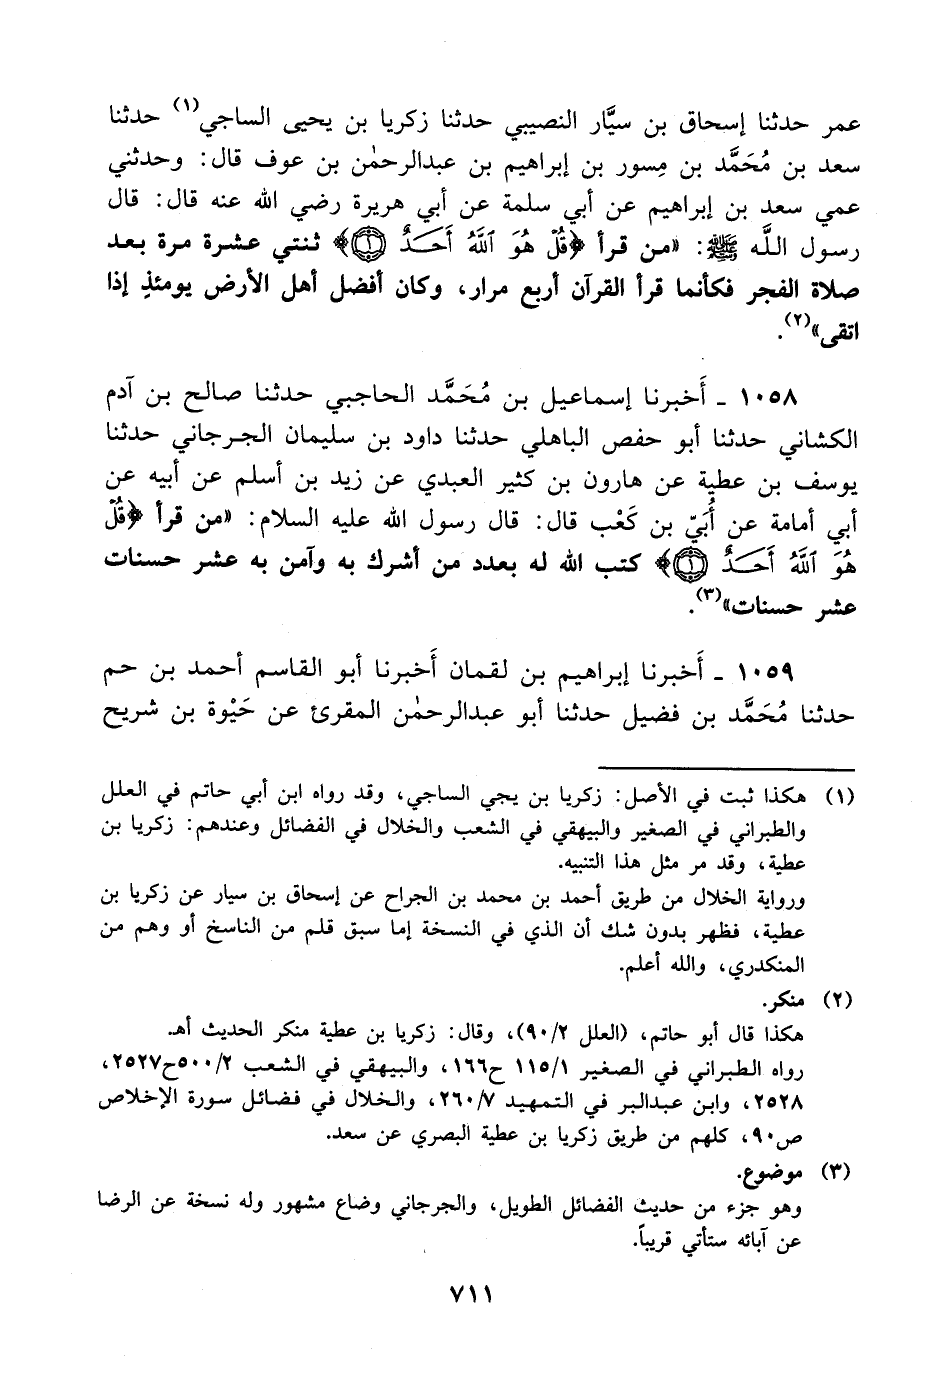 عمر حدثنا إسحاق بن سيَّار النصيبي حدثنا زكريا بن يحيى الساجي(١) حدثنا
سعد بن مُحَمَّد بن مِسور بن إبراهيم بن عبدالرحمٰن بن عوف قال: وحدثني
عمي سعد بن إبراهيم عن أبي سلمة عن أبي هريرة رضي الله عنه قال: قال
رسول اللَّه ﷺ: «من قرأ ﴿قُلْ هُوَ ٱللَّهُ أَحَدٌ ۝١﴾ ثنتي عشرة مرة بعد
صلاة الفجر فكأنما قرأ القرآن أربع مرار، وكان أفضل أهل الأرض يومئذٍ إذا
اتقى»(٢).
١٠٥٨ ـ أَخبرنا إسماعيل بن مُحَمَّد الحاجبي حدثنا صالح بن آدم
الكشاني حدثنا أبو حفص الباهلي حدثنا داود بن سليمان الجرجاني حدثنا
يوسف بن عطية عن هارون بن كثير العبدي عن زيد بن أسلم عن أبيه عن
أبي أمامة عن أُبَيّ بن كَعْب قال: قال رسول الله عليه السلام: «من قرأ ﴿قُلْ
هُوَ ٱللَّهُ أَحَدٌ ۝١﴾ كتب الله له بعدد من أشرك به وآمن به عشر حسنات
عشر حسنات»(٣).
١٠٥٩ ـ أَخبرنا إبراهيم بن لقمان أَخبرنا أبو القاسم أحمد بن حم
حدثنا مُحَمَّد بن فضيل حدثنا أبو عبدالرحمٰن المقرئ عن حَيْوة بن شريح
(١) هكذا ثبت في الأصل: زكريا بن يجي الساجي، وقد رواه ابن أبي حاتم في العلل
والطبراني في الصغير والبيهقي في الشعب والخلال في الفضائل وعندهم: زكريا بن
عطية، وقد مر مثل هذا التنبيه.
ورواية الخلال من طريق أحمد بن محمد بن الجراح عن إسحاق بن سيار عن زكريا بن
عطية، فظهر بدون شك أن الذي في النسخة إما سبق قلم من الناسخ أو وهم من
المنكدري، والله أعلم.
(٢) منكر.
هكذا قال أبو حاتم، (العلل ٩٠/٢)، وقال: زكريا بن عطية منكر الحديث أهـ.
رواه الطبراني في الصغير ١١٥/١ ح١٦٦، والبيهقي في الشعب ٥٠٠/٢ح٢٥٢٧،
٢٥٢٨، وابن عبدالبر في التمهيد ٢٦٠/٧، والخلال في فضائل سورة الإخلاص
ص٩٠، كلهم من طريق زكريا بن عطية البصري عن سعد.
(٣) موضوع.
وهو جزء من حديث الفضائل الطويل، والجرجاني وضاع مشهور وله نسخة عن الرضا
عن آبائه ستأتي قريباً.
٧١١